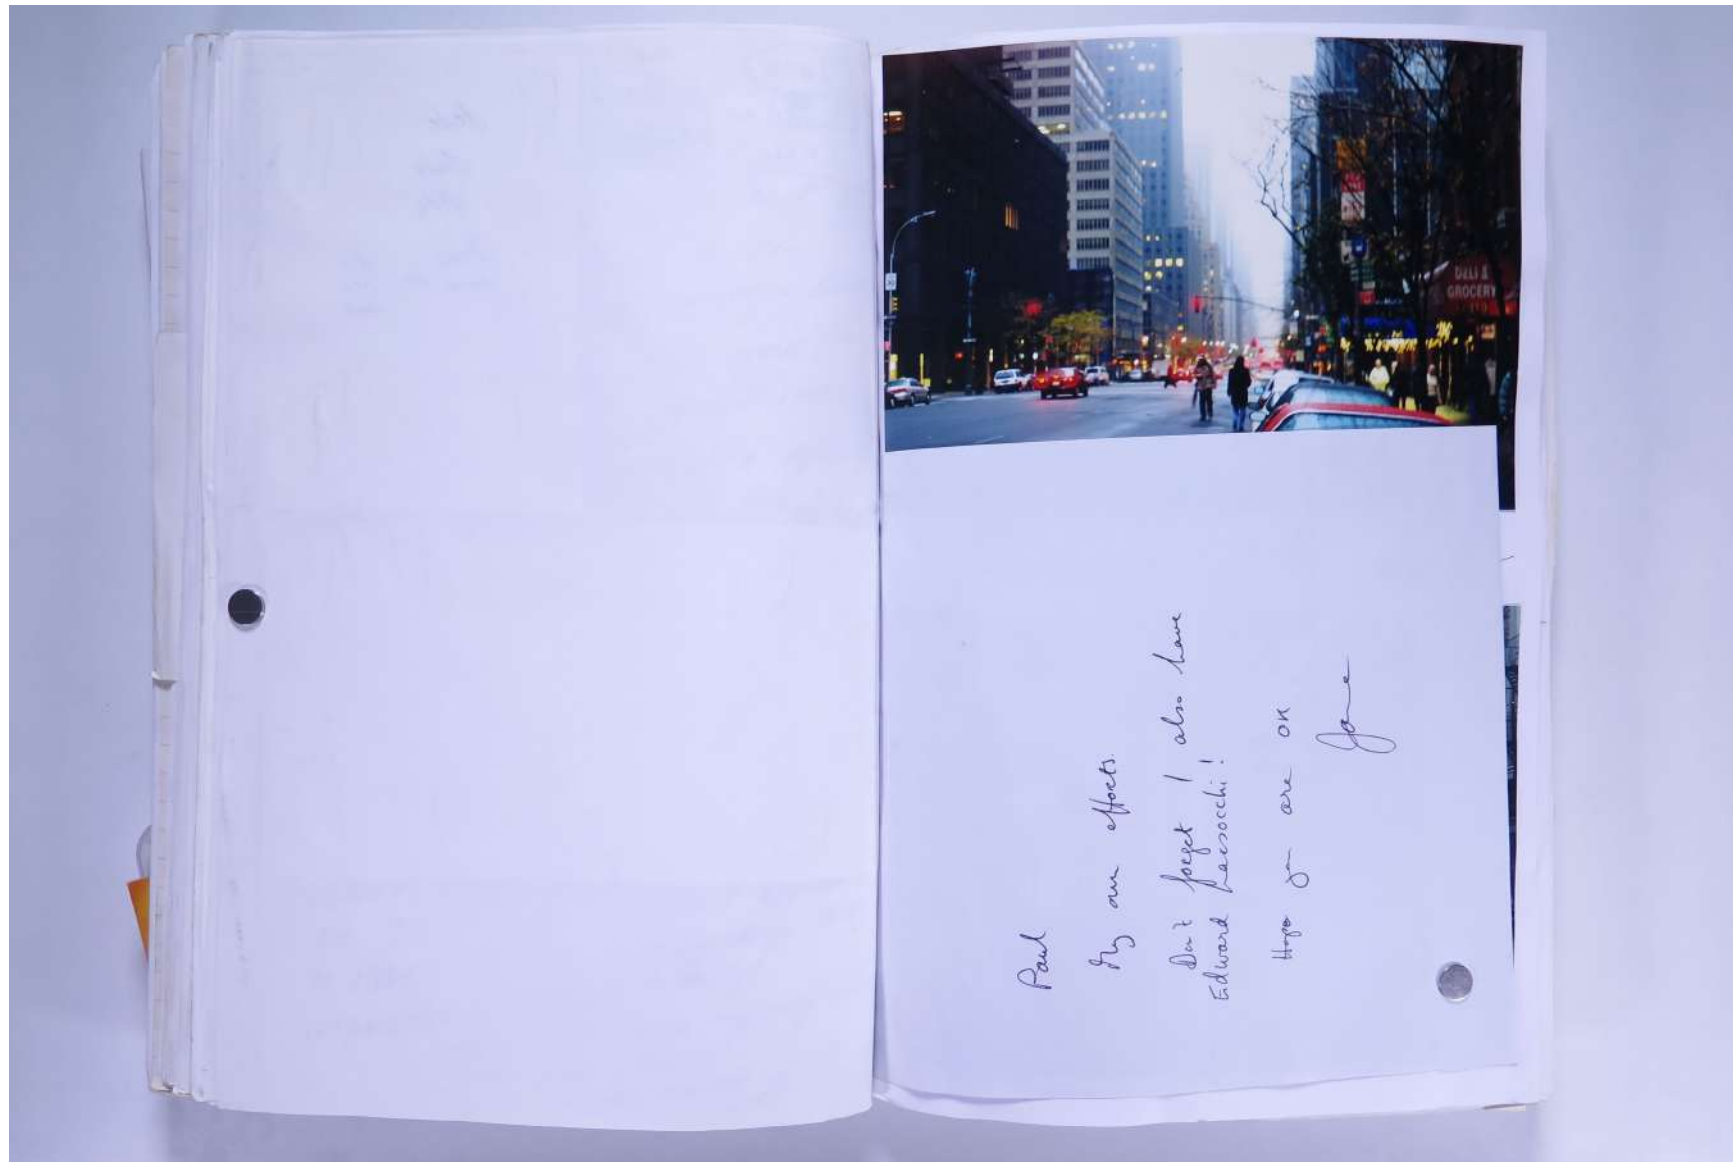 DELI &
GROCERY
Paul
My own efforts.
Don't forget I also have
Edward
Hope you are OK
Jane